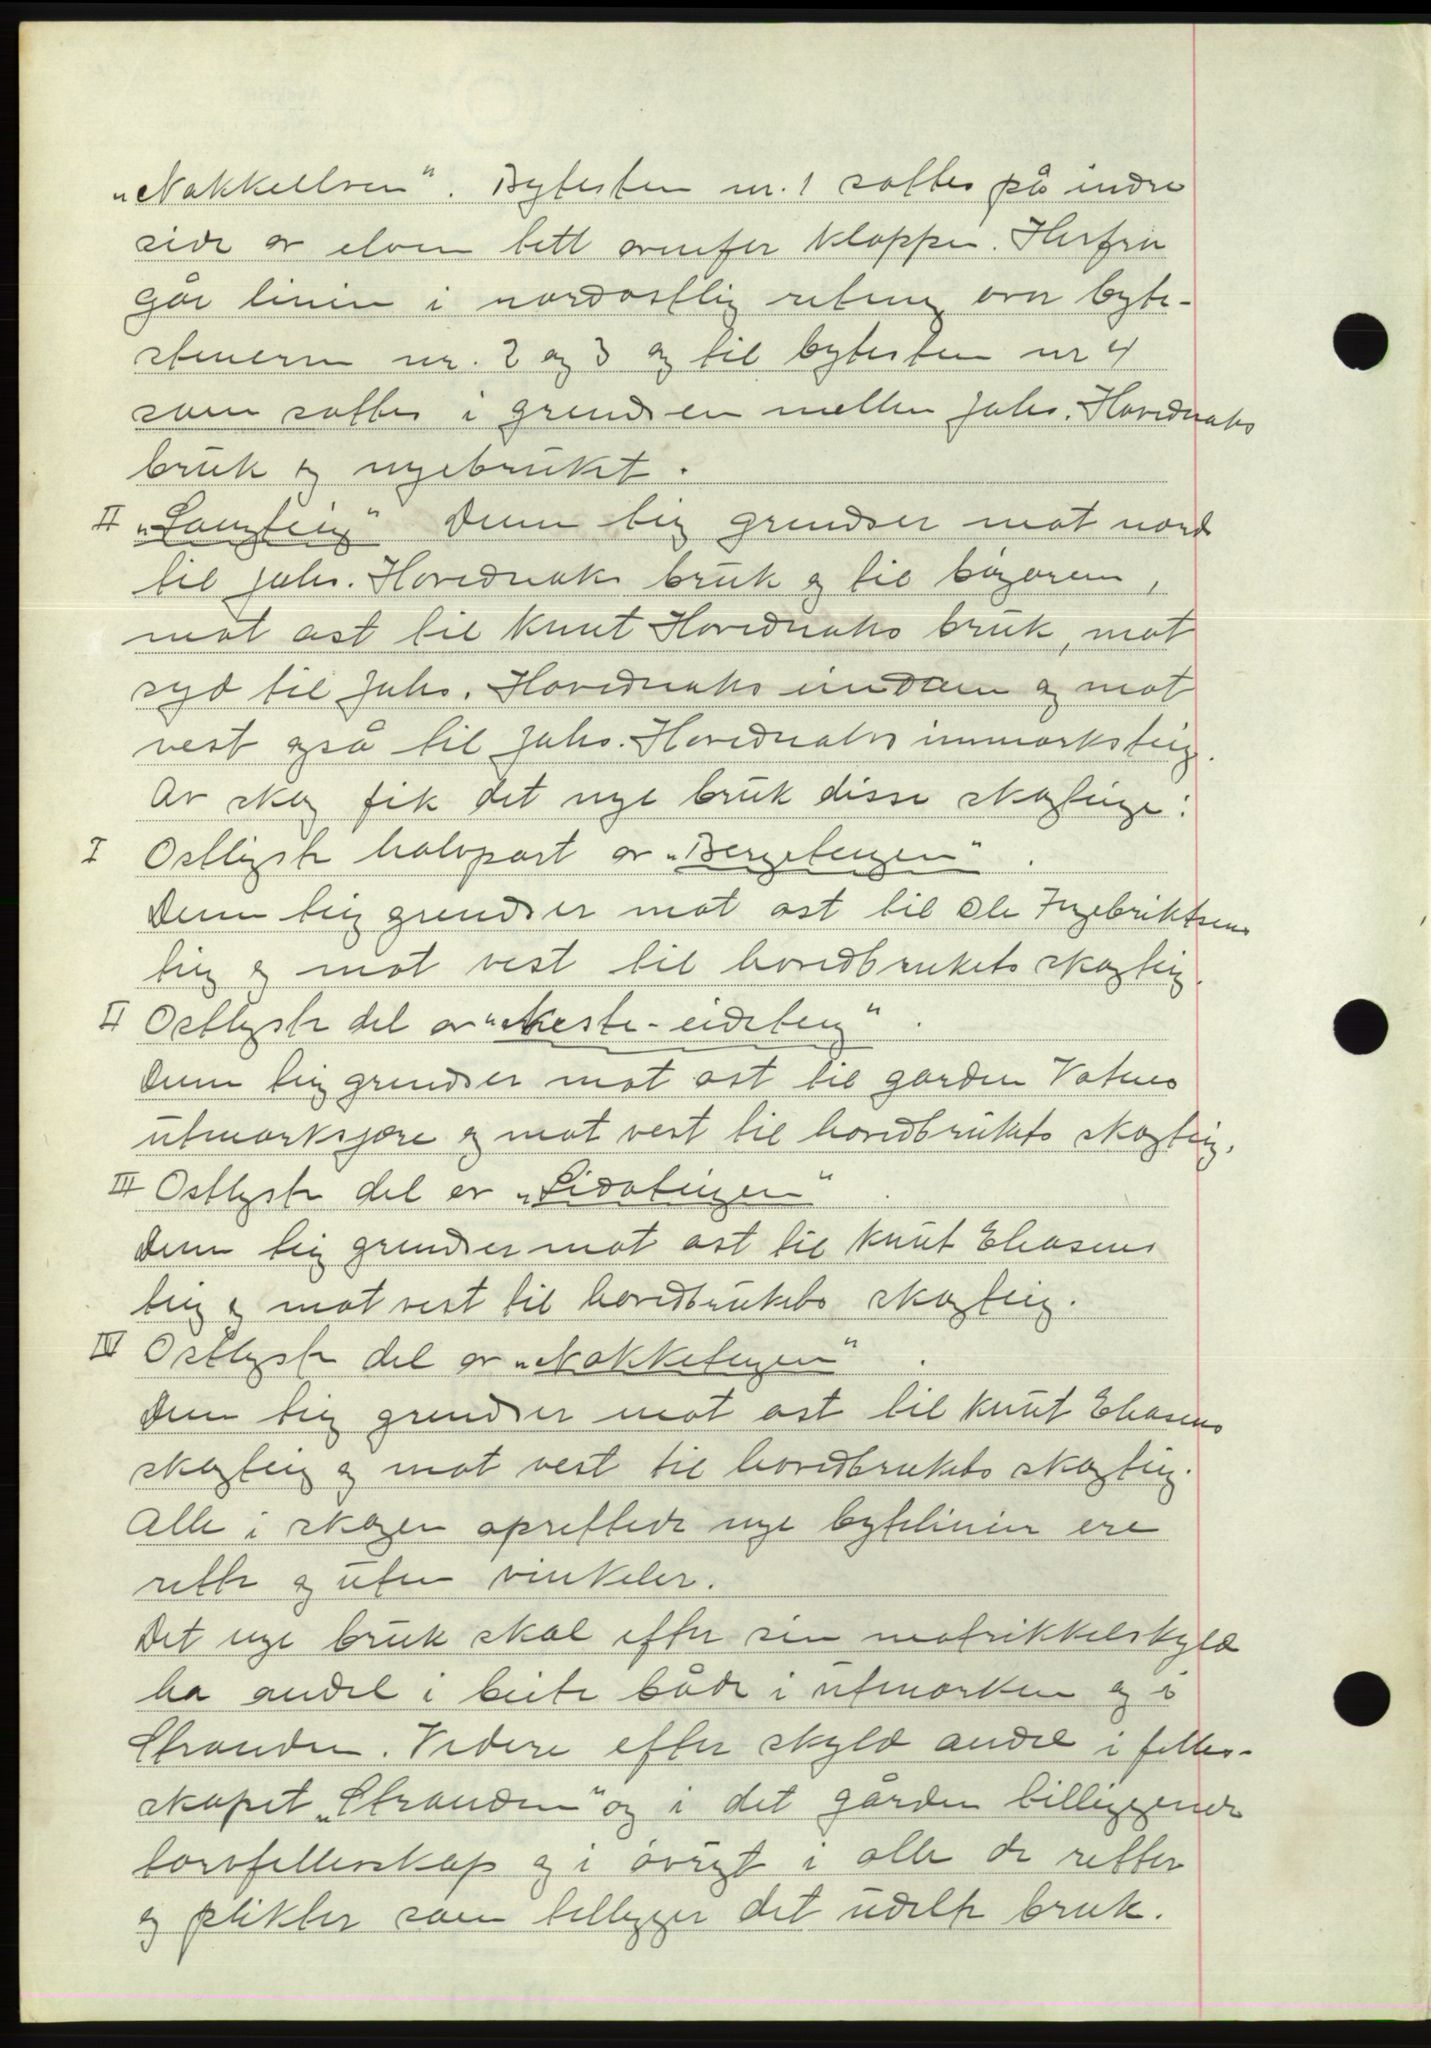 „Nakkelven“. Bytesten nr. 1 sattes på indre
side av elven tett ovenfor kloppen. Herfra
går linien i nordostlig retning over byte-
stenerne nr. 2 og 3 og til bytesten nr 4
som sattes i grendsen mellem Johs. Hovdenaks
bruk og nyebruket.
II „Langteig“ Denne teig grendser mot nord
til Johs. Hovdenaks bruk og til bøgaren,
mot ost til Knut Hovdenaks bruk, mot
syd til Johs. Hovdenaks inndam og mot
vest også til Johs. Hovdenaks innmarksteig.
Av skog fik det nye bruk disse skogteige:
I Ostligste halvpart av „Bergeteigen“.
Denne teig grendser mot ost til Ole Ingebriktsens
teig og mot vest til hovedbrukets skogteig.
II Ostligste del av „Neste-eidsteig“.
Denne teig grendser mot ost til garden Vatnes
utmarksjore og mot vest til hovedbrukets skogteig.
III Ostligste del av „Lidateigen“.
Denne teig grendser mot ost til Knut Eliasens
teig og mot vest til hovedbrukets skogteig.
IV Ostligste del av „Nakketeigen“.
Denne teig grendser mot ost til Knut Eliasens
skogteig og mot vest til hovedbrukets skogteig.
Alle i skogen oprettede nye bytelinier ere
rette og uten vinkeler.
Det nye bruk skal efter sin matrikkelskyld
ha andel i beite både i utmarken og i
Stranden. Videre efter skyld andel i felles-
skapet „Stranden“ og i det gården tilliggende
torvfellesskap og i øvrigt i alle de retter
og plikter som tilligger det udelte bruk.